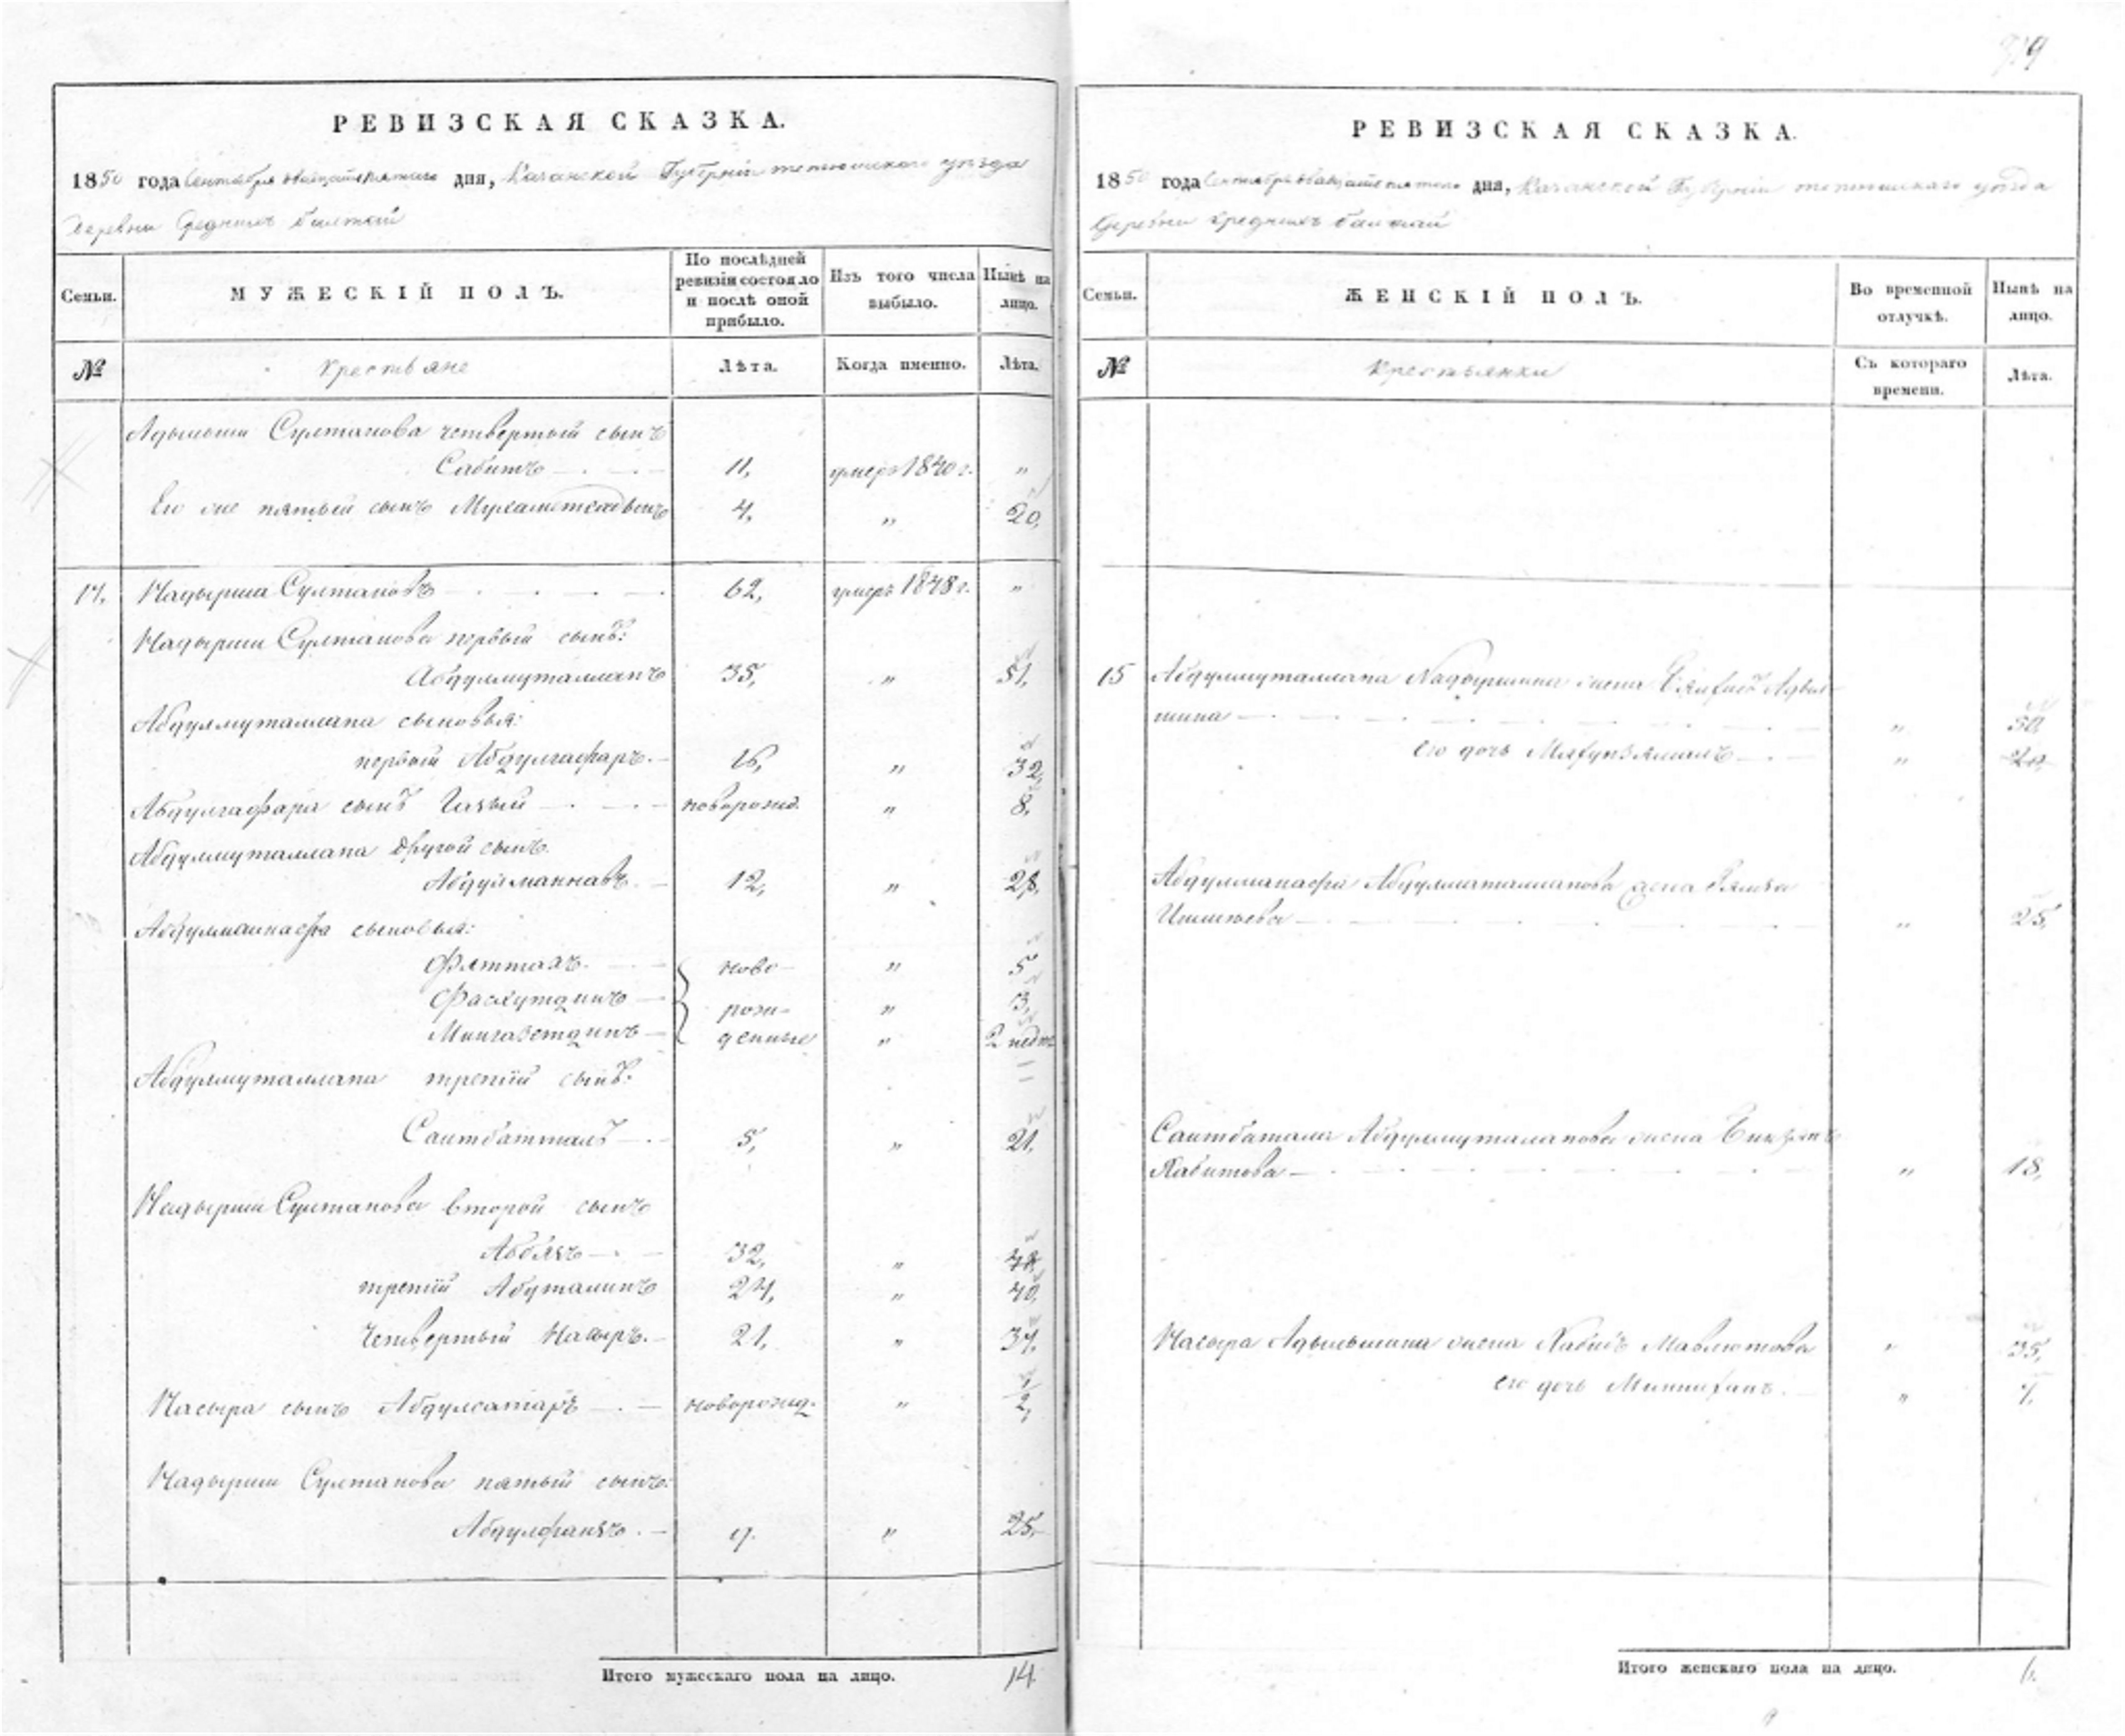 РЕВИЗСКАЯ СКАЗКА.
1850 года Сентября двадцатьпятаго дня, Казанской Губерніи тетюшскаго уѣзда
Деревни Среднихъ Балтай
Семьи.
МУЖЕСКІЙ ПОЛЪ.
По послѣдней ревизіи состояло и послѣ оной прибыло.
Изъ того числа выбыло.
Нынѣ на лицо.
№
Крестьяне
Лѣта.
Когда именно.
Лѣта.
Адильши Султанова четвертый сынъ
Сабитъ 11, умеръ 1840 г. „
Его же пятый сынъ 4, „ 20,
14. Надырша Султановъ 62, умеръ 1848 г. „
Надырши Султанова первый сынъ:
Абдулмуталлапъ 35, „ 51,
Абдулмуталлапа сыновья:
первый Абдулгафаръ. 16, „ 32,
Абдулгафара сынъ новорожд. „ 8,
Абдулмуталлапа другой сынъ.
Абдулманнавъ. 12, „ 28,
Абдулманнафа сыновья:
Фяттахъ. ново- „ 5
Фасхутдинъ рож- „ 3,
Мингазетдинъ денные „ 2 недѣ.
Абдулмуталлапа третій сынъ:
Саитбатталъ 5, „ 21,
Надырши Султанова второй сынъ
32, „ 48
третій Абуталипъ 24, „ 40,
Четвертый Насыръ. 21, „ 37,
Насыра сынъ Абдулсатаръ новорожд. „ 1/2,
Надырши Султанова пятый сынъ:
9. „ 25,
Итого мужескаго пола на лицо. 14.
РЕВИЗСКАЯ СКАЗКА.
1850 года Сентября двадцатьпятаго дня, Казанской Губерніи тетюшскаго уѣзда
Деревни Среднихъ Балтай
Семьи.
ЖЕНСКІЙ ПОЛЪ.
Во временной отлучкѣ.
Нынѣ на лицо.
№
Крестьянки
Съ котораго времени.
Лѣта.
15 Абдулмуталлапа Надыршина жена Адыл-
шина „ 50,
его дочь „
Абдулманафа Абдулматаллапова жена
„ 25,
Саитбатала Абдулмуталапова жена
Хабитова „ 18,
Насыра Адыльшина жена Мавлютова „ 35,
его дочь Миннихант. „ 7,
Итого женскаго пола на лицо. 6.